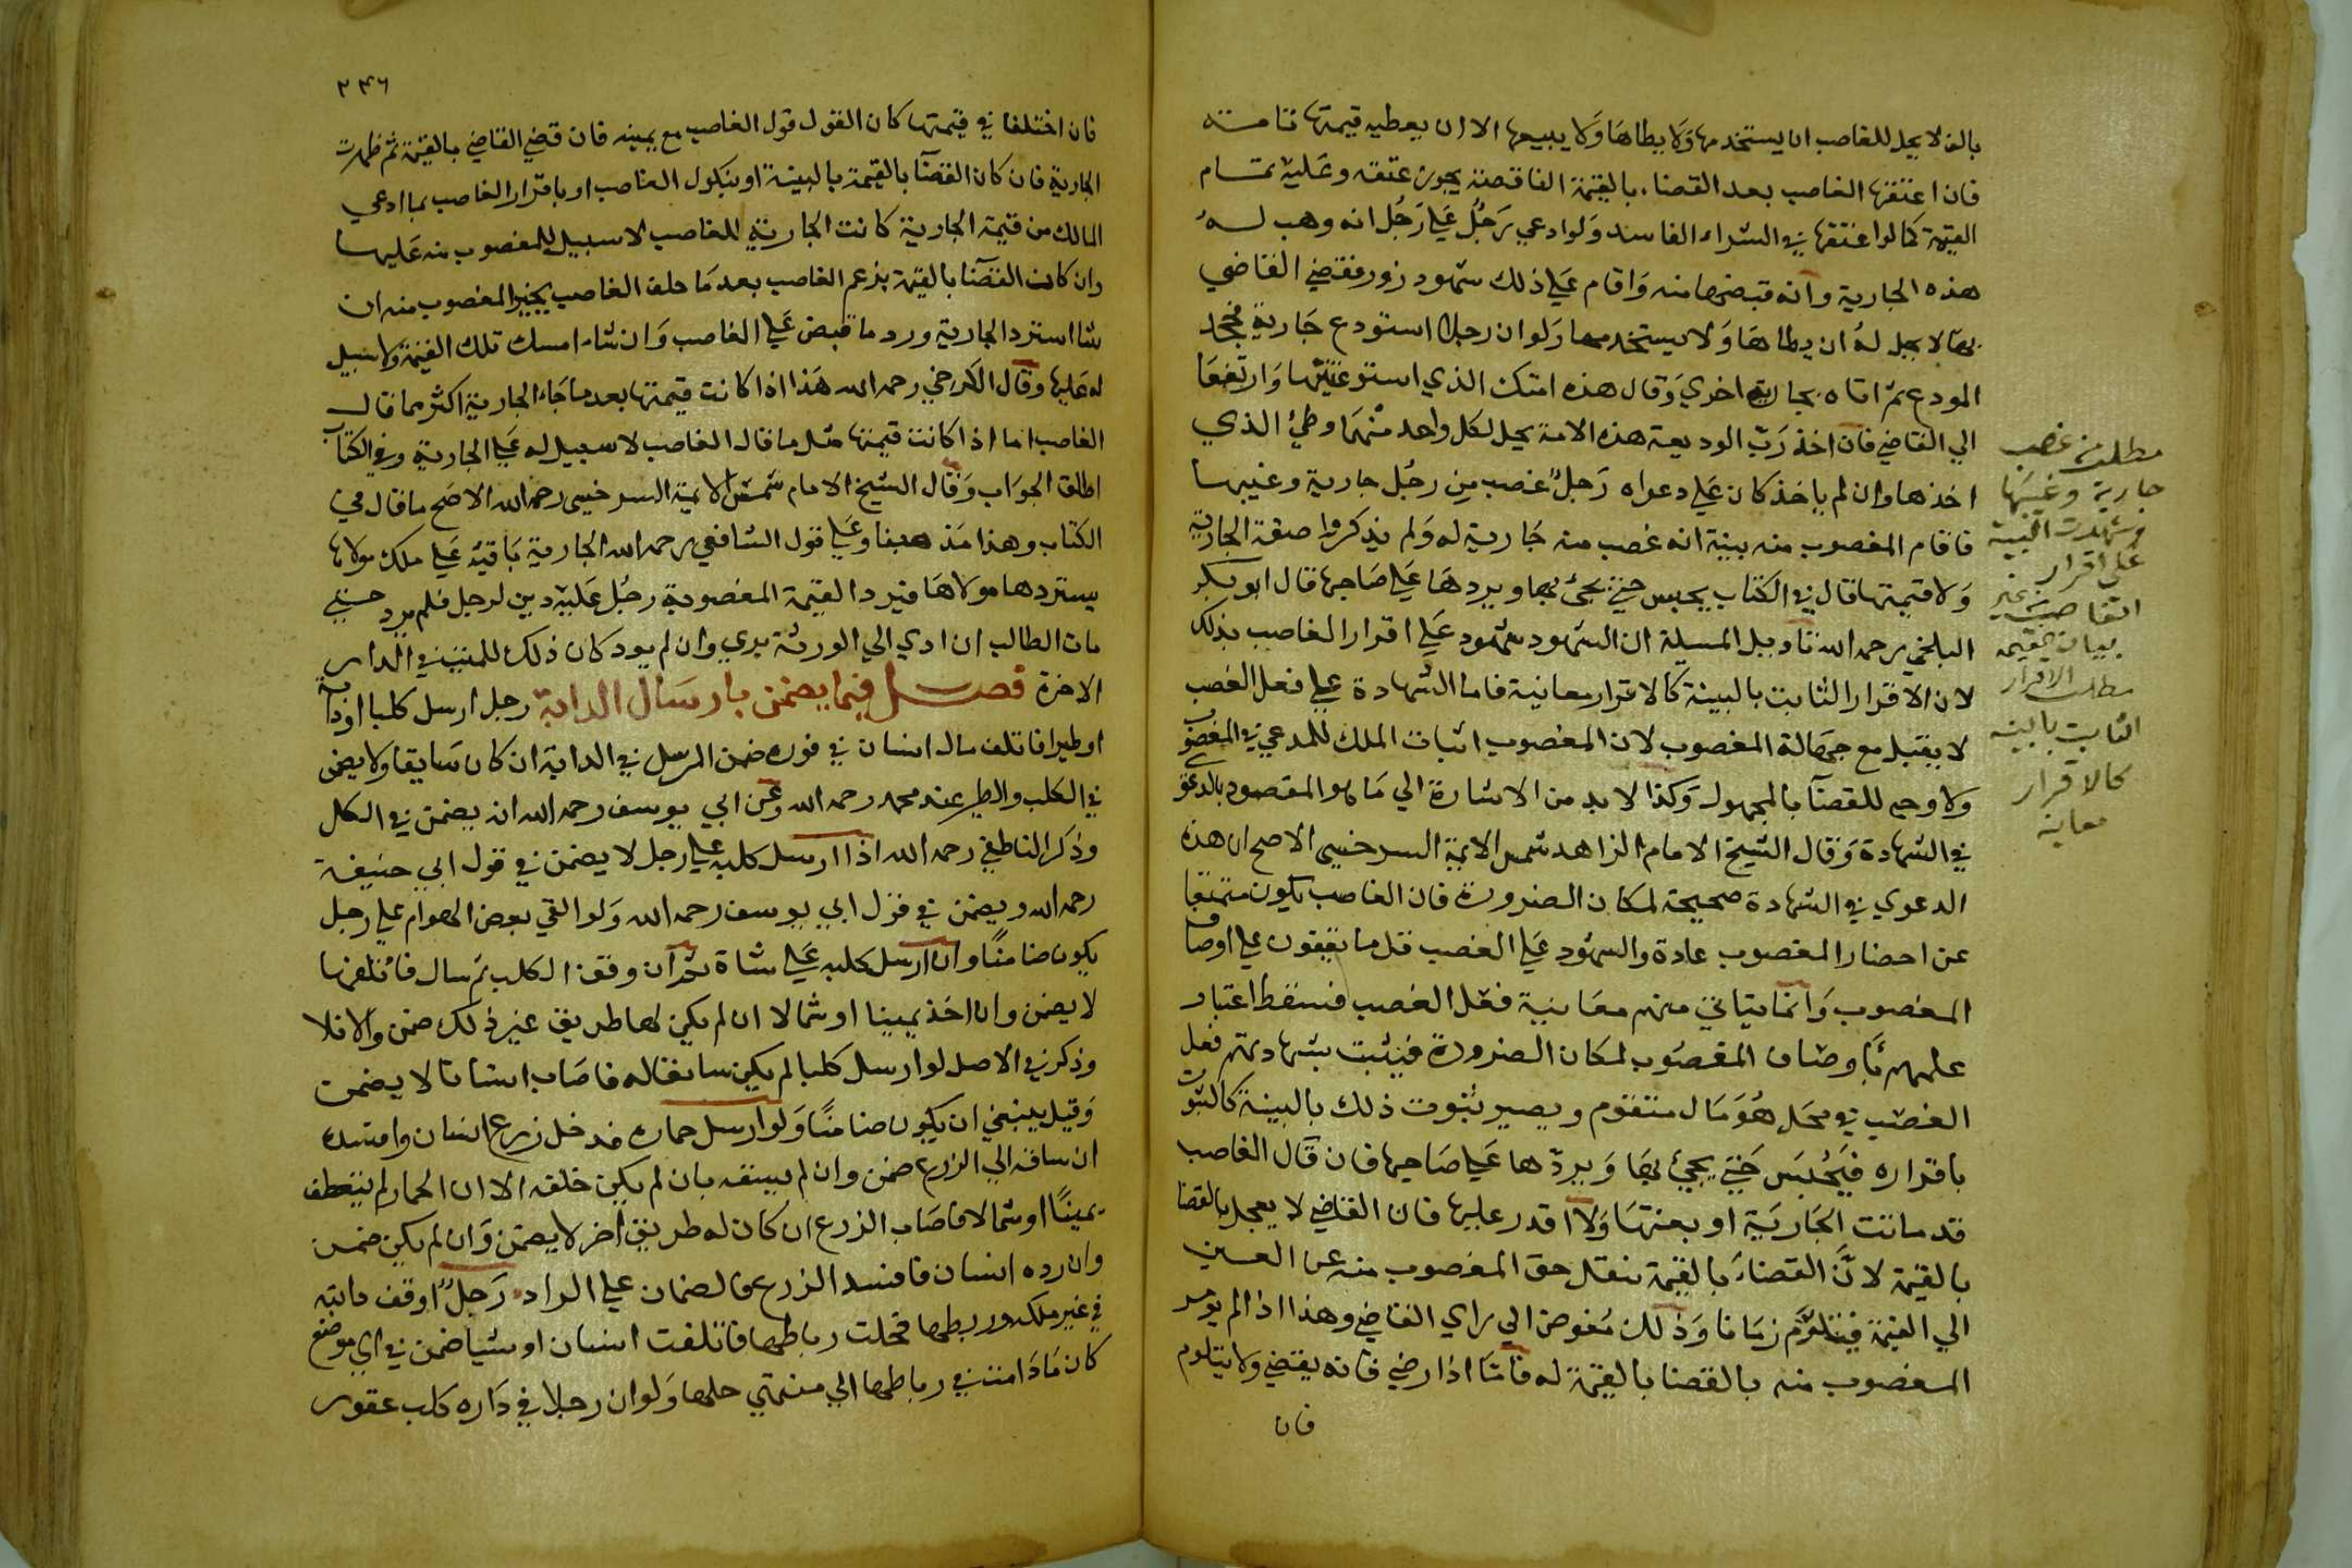 بالف لا يحل للغاصب ان يستخدمها وَلا يطاها وَلا يبيعها الا ان يعطيه قيمتها تامـــة
فان اعتقها الغاصب بعد القضاء بالقيمة الناقصة يجوز عتقه وعَليه تمـــام
القيمة كما لو اعتقها في الشراء الفاسد وَلو ادعي رَجُل عَلي رَجُل انه وهب لـــهُ
هذه الجارية وانه قبضها منه وَاقام عَلي ذلك شهود زور فقضي القاضي
بها لا يحل لهُ ان يطاها وَلا يستخدمها وَلو ان رجلا استودع جَارية فجحد
المودع ثم اتاه بجارية اخري وَقال هذه امتك الذي استودعتنيها وَارتفعَا
الي القاضي فان اخذ رَبّ الوديعة هذه الامة يحل لكل واحد منهَما وطئ الذي
اخذها وان لم ياخذ كان عَلي دعواه رَجلٌ غصب مِن رجُل جارية وغيبها
فاقام المغصوب منه بينة انه غصب منه جَارية له وَلم يذكروا صفة الجارية
وَلا قيمتها قال في الكتاب يحبس حتي يجئ بها ويردهَا عَلي صَاحبها قال ابو بكر
البلخي رحمه الله تاويل المسيلة ان الشهود شهود عَلي اقرار الغاصب بذلك
لان الاقرار الثابت بالبينة كالاقرار معاينة فاما الشهادة علي فعل الغصب
لا يقبل مع جهَالة المغصوب لان المغصوب اثبات الملك للمدعي في المغصوب
ولا وجه للقضآ بالمجهول وَكذا لا بد من الاشارة الي مَا هو المقصود بالدعوي
في الشهادة وَقال الشيخ الامام الزاهد شمس الايمة السرخسي الاصح ان هذه
الدعوي في الشهادة صحيحة لمكان الضرورة فان الغاصب يكون ممتنعا
عن احضار المغصوب عادة والشهود عَلي الغصب قل ما يقفون علي اوصاف
المغصوب وَانما يتاتي منهم معَاينة فعل الغصب فسقط اعتبار
علمهم باوصَاف المغصوب لمكان الضرورة فيثبت بشهادتهم فعل
الغصب في محَل هُوَ مَال متقوم ويصير ثبوت ذلك بالبينة كالثبوت
باقراره فيَحُبَس حَتي يجئ بهَا وَيردّها عَلي صَاحبها فان قَال الغاصب
قد ماتت الجَاريَة او بعتهَا وَلا اقدر عليها فان القاضي لا يعجل بالقضا
بالقيمة لانَّ القضاءَ بالقيمة ينقل حق المغصوب منه عن العــين
الي القيمة فيتلوَّم زمَانا وَذلك مُفوض الي راي القاضي وهذا اذا لم يرض
المغصوب منه بالقضا بالقيمة له فامَّا اذا رضي فانه يقضي ولا يتلوم
فان
مطلب من غصب
جارية وغيبها
وشهدت البينة
علي اقرار
الغاصب بغير
بيان القيمة
مطلب الاقرار
الثابت بالبينة
كالاقرار
معاينه
٢٣٦
فان اختلفا في قيمتها كان القول قول الغاصب مع يمينه فان قضي القاضي بالقيمة ثم ظهرت
الجارية فان كان القضآ بالقيمة بالبينة او بنكول الغاصب او باقرار الغاصب بما ادعي
المالك من قيمة الجارية كانت الجارية للغاصب لا سبيل للمغصوب منه عَليها
وان كان القضآ بالقيمة بزعم الغاصب بعد مَا حلف الغاصب يخير المغصوب منه ان
شا استرد الجارية ورد ما قبض عَلي الغاصب وَان شاء امسك تلك القيمة ولا سبيل
له عَليها وقال الكرخي رحمه الله هَذا اذا كانت قيمتها بعد ما جَاء الجارية اكثر مما قالـ
الغاصب اما اذا كانت قيمتها مثل ما قال الغاصب لا سبيل له عَلي الجارية وفي الكتاب
اطلق الجوَاب وَقال الشيخ الامام شمس الايمة السرخسي رحمه الله الاصَح ما قال في
الكتاب وهذا مَذهبنا وعَلي قول الشافعي رحمه الله الجارية بَاقيَة عَلي ملك مولاها
يستردها مولاهَا فيرد القيمة المغصوبة رجُل عَليه دين لرجل فلم يرد حــتي
مات الطالب ان ادي الي الورثة بري وان لم يود كان ذلك للميت في الدار
الاخرة فصـــل فيما يضمن بارسَال الدابة رجل ارسل كلبا او دابة
او طيرا فاتلف مال انسان في فوره ضمن المرسل في الدابة ان كان سَايقا ولا يضمن
في الكلب والطير عند محمد رحمه الله وعَن ابي يوسف رحمه الله انه يضمن في الكل
وذكر الناطفي رحمه الله اذا ارسل كلبه علي رجل لا يضمن في قول ابي حنيفـة
رحمه الله ويضمن في قول ابي يوسف رحمه الله وَلو القي بعض الهوام علي رجل
يكون ضامنًا وان ارسل كلبه عَلي شاة ان وقف الكلب ثم سال فاتلفها
لا يضمن وان اخذ يمينا او شمالا ان لم يكن لها طريق غير ذلك ضمن وَالا فلا
وذكر في الاصل لو ارسل كلبا لم يكن سايقا له فاصَاب انسانا لا يضمن
وَقيل ينبغي ان يكون ضامنًا وَلو ارسل حماره فدخل زرع انسان وافسد
ان ساقه الي الزرع ضمن وان لم يسقه بان لم يكن خلفه الا ان الحمار لم ينعطف
يمينًا او شمالا فاصَاب الزرع ان كان له طريق اخر لا يضمن وَان لم يكن ضمـن
وان رده انسان فافسد الزرع فالضمان علي الراد رَجلٌ اوقف دابته
في غير ملكه وربطها فحلت رباطها فاتلفت انسان او شيا ضمن في اي موضع
كان مَا دَامت في رباطها الي حلها وَلو ان رجلا في دَاره كلب عقور